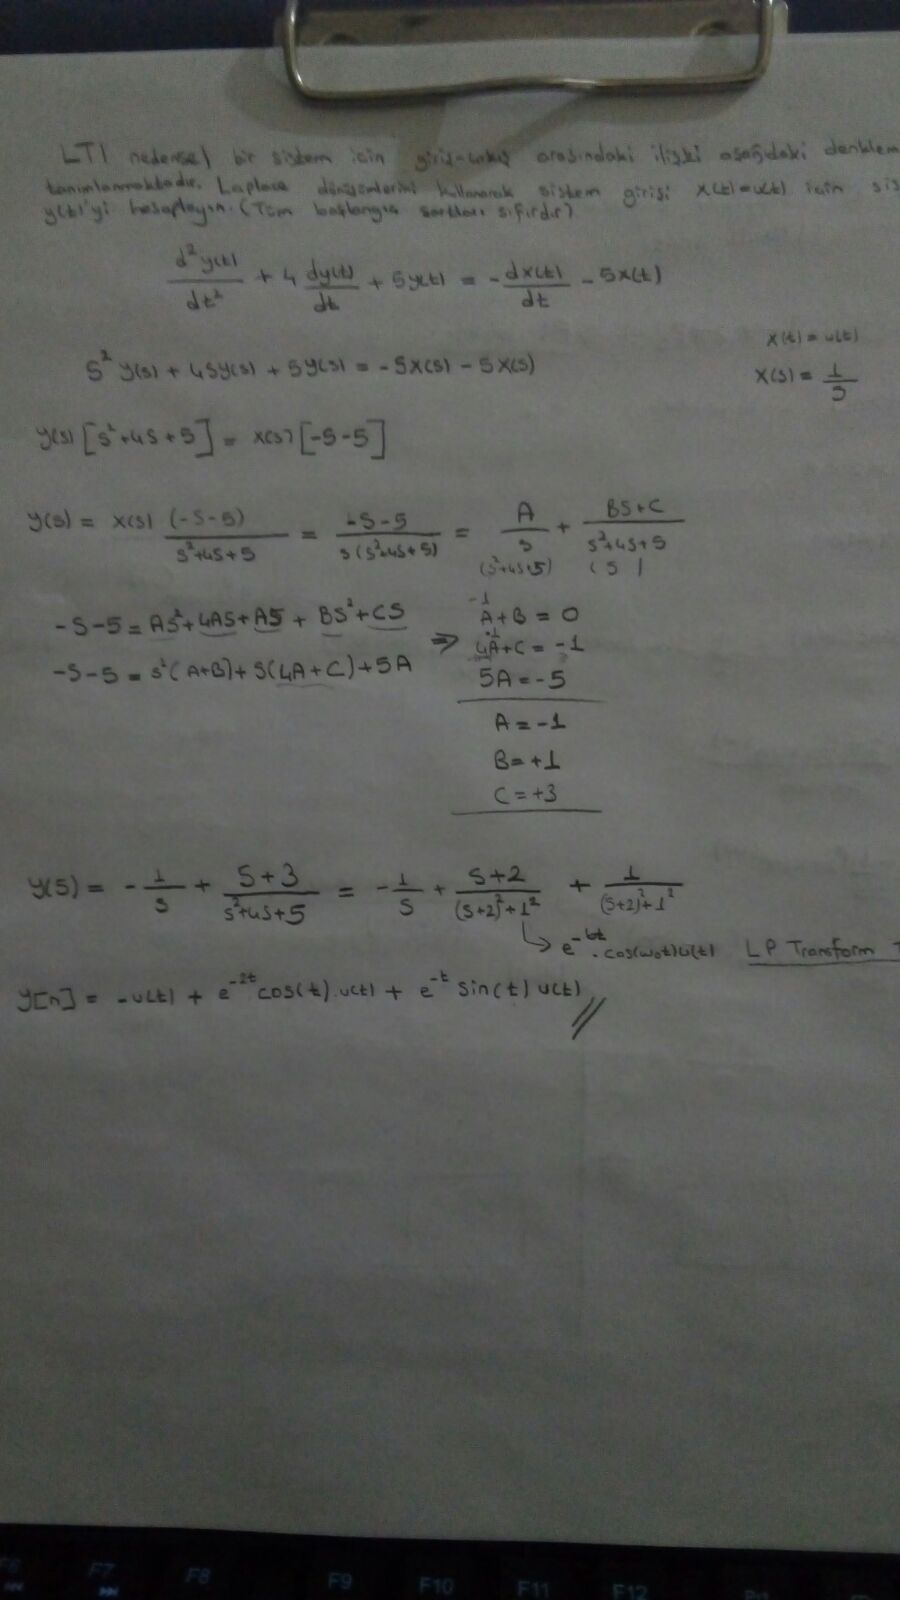 LTI nedensel bir sistem için giriş-çıkış arasındaki ilişki aşağıdaki denklem
tanımlanmaktadır. Laplace dönüşümlerini kullanarak sistem girişi x(t)=u(t) için sis
y(t)'yi hesaplayın. (Tüm başlangıç şartları sıfırdır)
d²y(t)/dt² + 4 dy(t)/dt + 5y(t) = - dx(t)/dt - 5x(t)
x(t) = u(t)
S² y(s) + 4Sy(s) + 5y(s) = -Sx(s) - 5x(s)
x(s) = 1/S
y(s) [S²+4S+5] = x(s) [-S-5]
y(s) = x(s) (-S-5)/(S²+4S+5) = (-S-5)/(S(S²+4S+5)) = A/S + (BS+C)/(S²+4S+5)
(S²+4S+5) (S)
-S-5 = AS²+4AS+A5 + BS²+CS
-S-5 = S²(A+B)+S(4A+C)+5A
⇒
-1
A+B = 0
-1
4A+C = -1
5A = -5
A = -1
B = +1
C = +3
y(s) = - 1/S + (S+3)/(S²+4S+5) = - 1/S + (S+2)/((S+2)²+1²) + 1/((S+2)²+1²)
→ e^-bt . cos(w₀t)u(t) LP Transform T
y[n] = -u(t) + e^-2t cos(t).u(t) + e^-t sin(t) u(t) //
F6 F7 F8 F9 F10 F11 F12